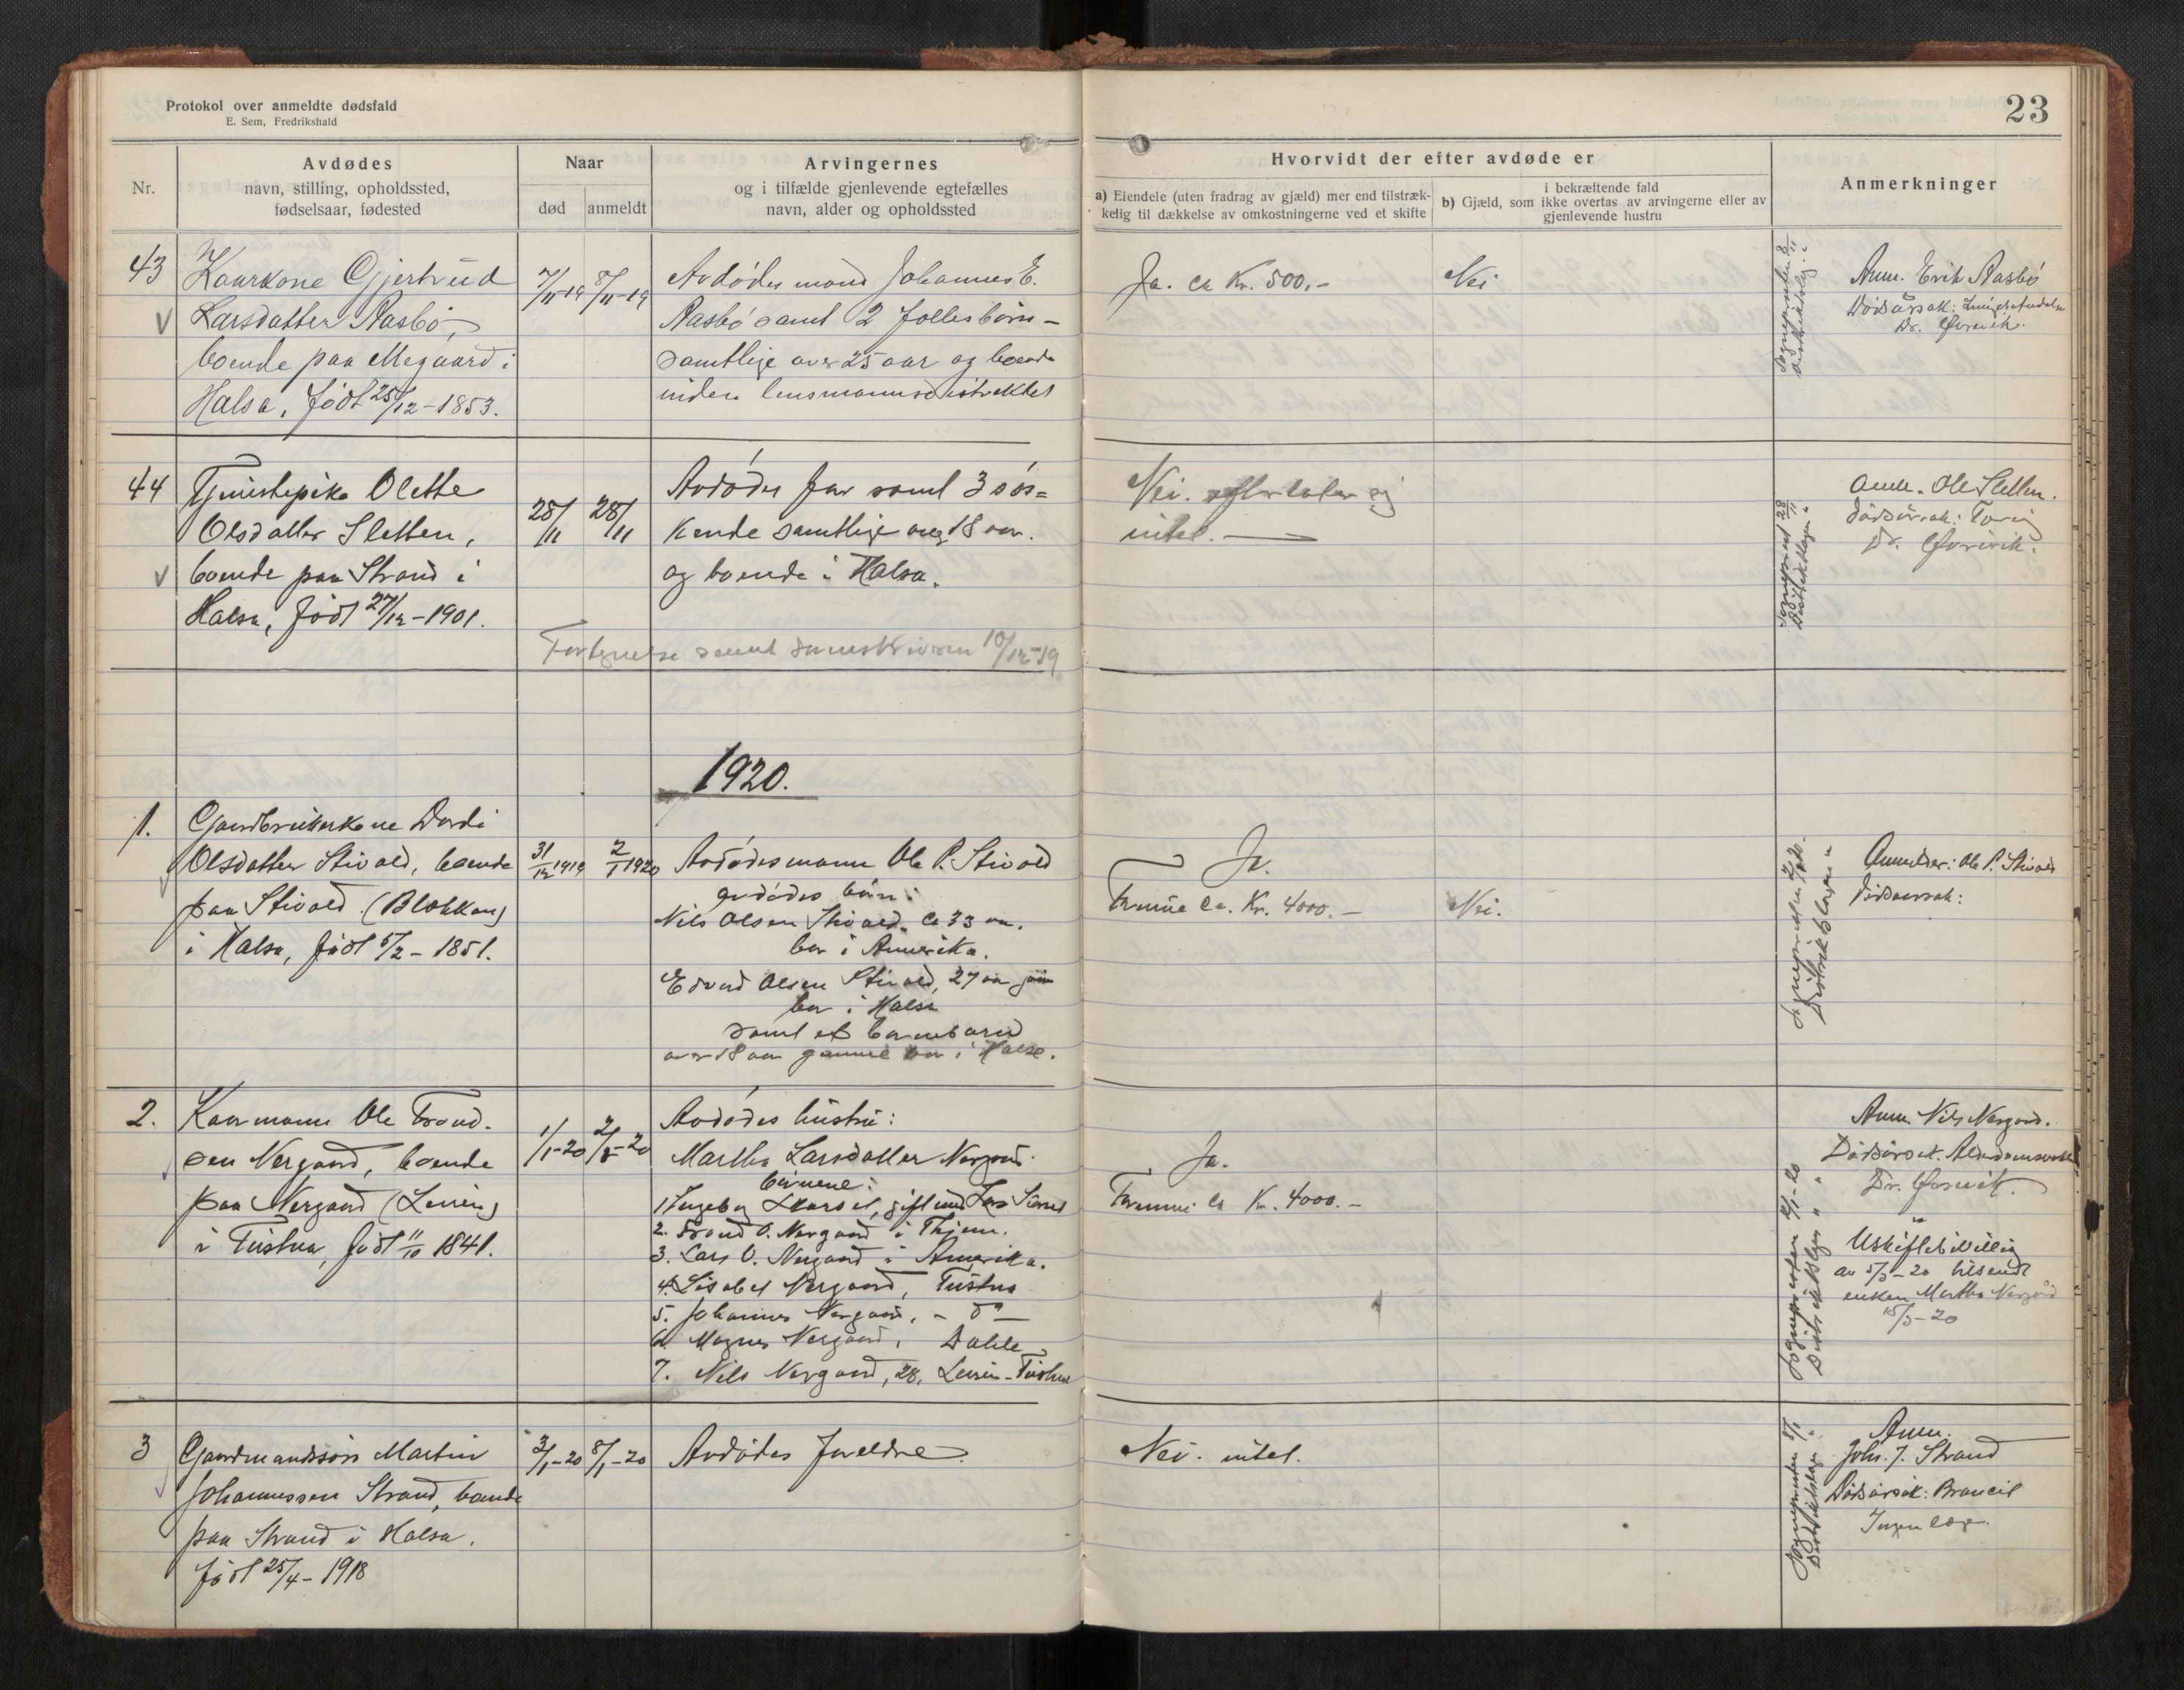 Protokol over anmeldte dødsfald
E. Sem, Fredrikshald
23
Nr.
Avdødes
navn, stilling, opholdssted,
fødselsaar, fødested
Naar
død
anmeldt
Arvingernes
og i tilfælde gjenlevende egtefælles
navn, alder og opholdssted
Hvorvidt der efter avdøde er
a) Eiendele (uten fradrag av gjæld) mer end tilstræk-
kelig til dækkelse av omkostningerne ved et skifte
i bekræftende fald
b) Gjæld, som ikke overtas av arvingerne eller av
gjenlevende hustru
Anmerkninger
43
Kaarkone Gjertrud
Larsdatter Aasbø,
boende paa Megaard i
Halsa, født 25/12-1853.
7/11-19
8/11-19
Avdødes mand Johannes E.
Aasbø samt 2 fællesbørn -
samtlige over 25 aar og boende
inden lensmannsdistriktet
Ja. ca Kr. 500.-
Nei
Sognepresten 8/11
Distriktslæg. "
Anm. Erik Aasbø
Dødsårsak:
Dr.
44
Tjenestepike Olette
Olsdatter Sletten,
boende paa Strand i
Halsa, født 27/12-1901.
28/11
28/11
Avdødes far samt 3 søs=
kende samtlige over 18 aar.
og boende i Halsa.
Nei. efterlater sig
intet.
Sogneprest 28/11
Distriktslægen "
Anm. Ole Sletten.
Dødsårsak:
Dr.
Fortegnelse sendt sorenskriveren 10/12-19
1920.
1.
Gaardbrukerkone Dordi
Olsdatter Stivold, boende
paa Stivold (Blokkan)
i Halsa, født 5/2-1851.
31/12 1919
2/1 1920
Avdødes mann Ole P. Stivold
avdødes børn:
Nils Olsen Stivold. ca 33 aar.
bor i Amerika.
Edvard Olsen Stivold, 27 aar
bor i Halsa
samt et barnebarn
over 18 aar gammel bor i Halsa.
Ja.
Formue ca. Kr. 4000.-
Nei.
Sognepresten 2/1-20.
Distriktslægen "
Anmelder: Ole P. Stivold
Dødsaarsak:
2.
Kaarmann Ole Trond-
sen Nergaard, boende
paa Nergaard (Leirin)
i Tustna, født 11/10 1841.
1/1-20
2/1-20
Avdødes hustru:
Martha Larsdatter Nergaard.
børnene:
1 Ingeborg, gift med Lars
2. Trond O. Nergaard i
3. Lars O. Nergaard i Amerika.
4. Lisabet Nergaard, Tustna
5. Johannes Nergaard, - do -
6. Magnus Nergaard, Dahle
7. Nils Nergaard, 28, Leirin-Tustna
Ja.
Formue ca Kr. 4000.-
Sognepresten 2/1-20
Distriktslæge " "
Anm. Nils Nergaard.
Dødsårsak. Alderdomssvakhet
Dr.
Uskiftebevilling
av 5/3-20 tilsendt
enken Martha Nergård
15/3-20
3
Gaardmandssøn Martin
Johannessen Strand, boende
paa Strand i Halsa.
født 25/4-1918
3/1-20
8/1-20
Avdødes foreldre
Nei. intet.
Sognepresten 8/1
Distriktslæge "
Anm.
Johs. J. Strand
Dødsårsak:
Ingen læge.